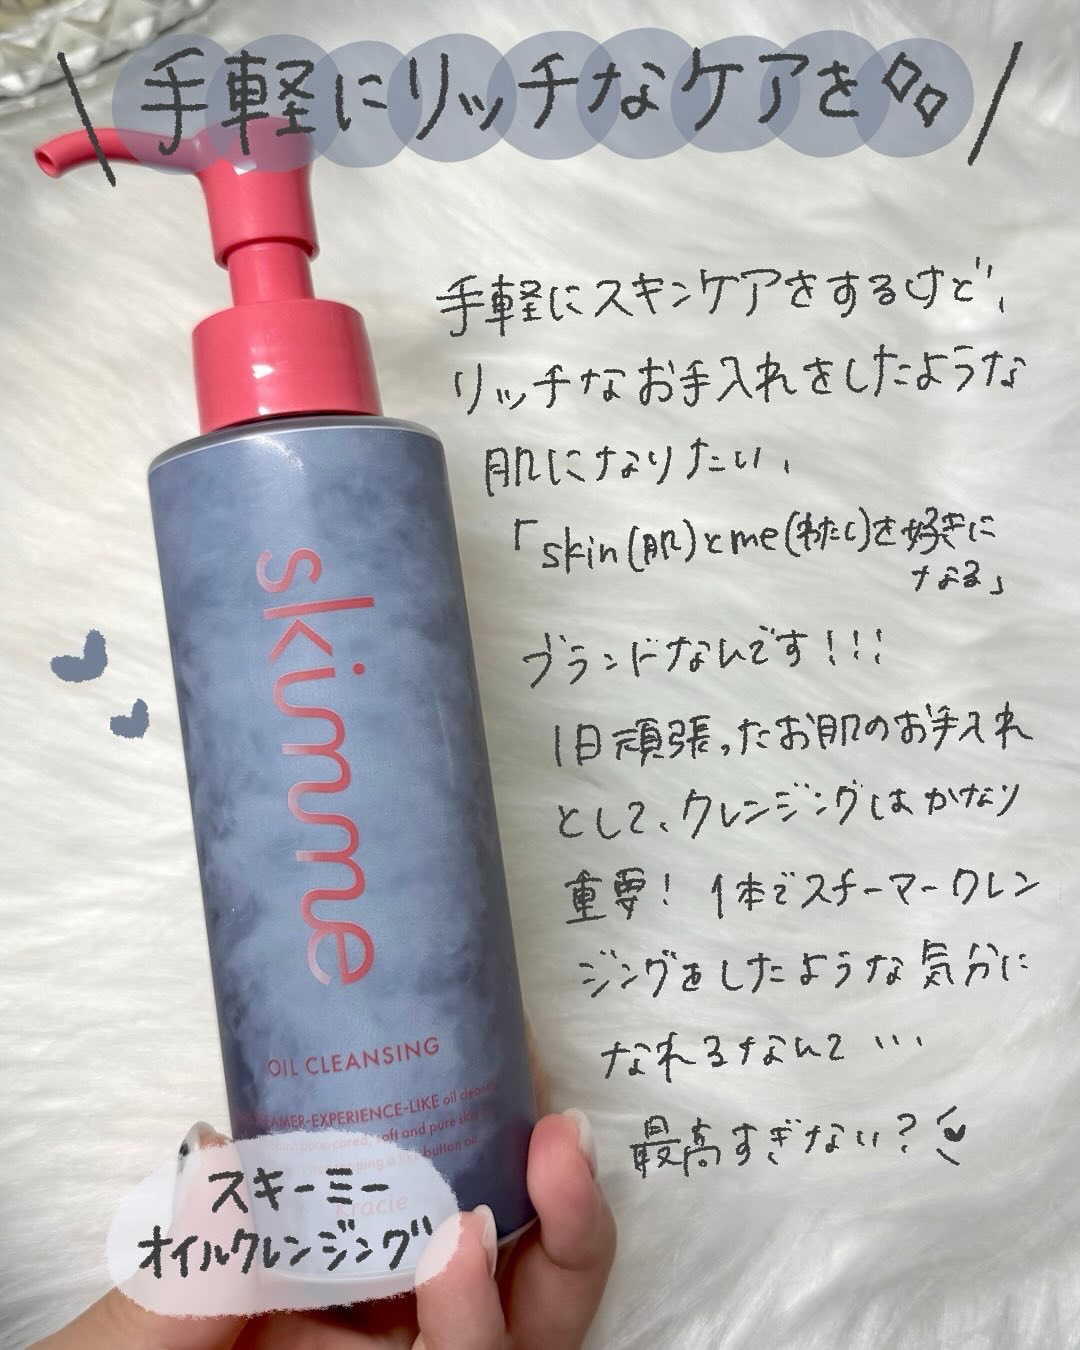 \ 手軽にリッチなケアを /
手軽にスキンケアをするけど、
リッチなお手入れをしたような
肌になりたい、
「skin(肌)とme(わたし)を好きに
なる」
ブランドなんです!!!
1日頑張ったお肌のお手入れ
として、クレンジングはかなり
重要! 1本でスチーマークレン
ジングをしたような気分に
なれるなんて…
最高すぎない?
skimme
OIL CLEANSING
EAMER-EXPERIENCE-LIKE oil cleans
pore-cared, soft and pure skin
button oil
Kracie
スキーミー
オイルクレンジング